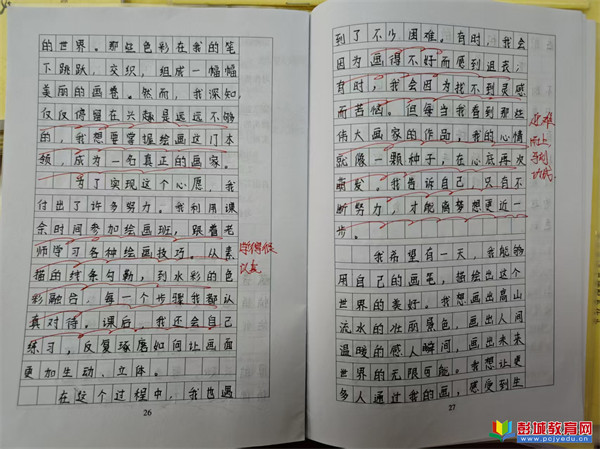 的世界。那些色彩在我的笔
下跳跃，交织，组成一幅幅
美丽的画卷。然而，我深知，
仅仅停留在兴趣是远远不够
的，我想要掌握绘画这门本
领，成为一名真正的画家。
为了实现这个心愿，我
付出了许多努力。我利用课
余时间参加绘画班，跟着老
师学习各种绘画技巧。从素
描的线条勾勒，到水彩的色
彩融合，每一个步骤我都认
真对待。课后，我还会自己
练习，反复琢磨如何让画面
更加生动、立体。
在这个过程中，我也遇
26
到了不少困难。有时，我会
因为画得不好而感到沮丧；
有时，我会因为找不到灵感
而苦恼。但每当我看到那些
伟大画家的作品，我的心情
就像一颗种子，在心底再次
萌发。我告诉自己，只有不
断努力，才能离梦想更近一
步。
我希望有一天，我能够
用自己的画笔，描绘出这个
世界的美好。我想画出高山
流水的壮丽景色，画出人间
温暖的感人瞬间，画出未来
世界的无限可能。我想让更
多人通过我的画，感受到生
27
迎难
而上
彭城教育网
www.pcjyedu.cn